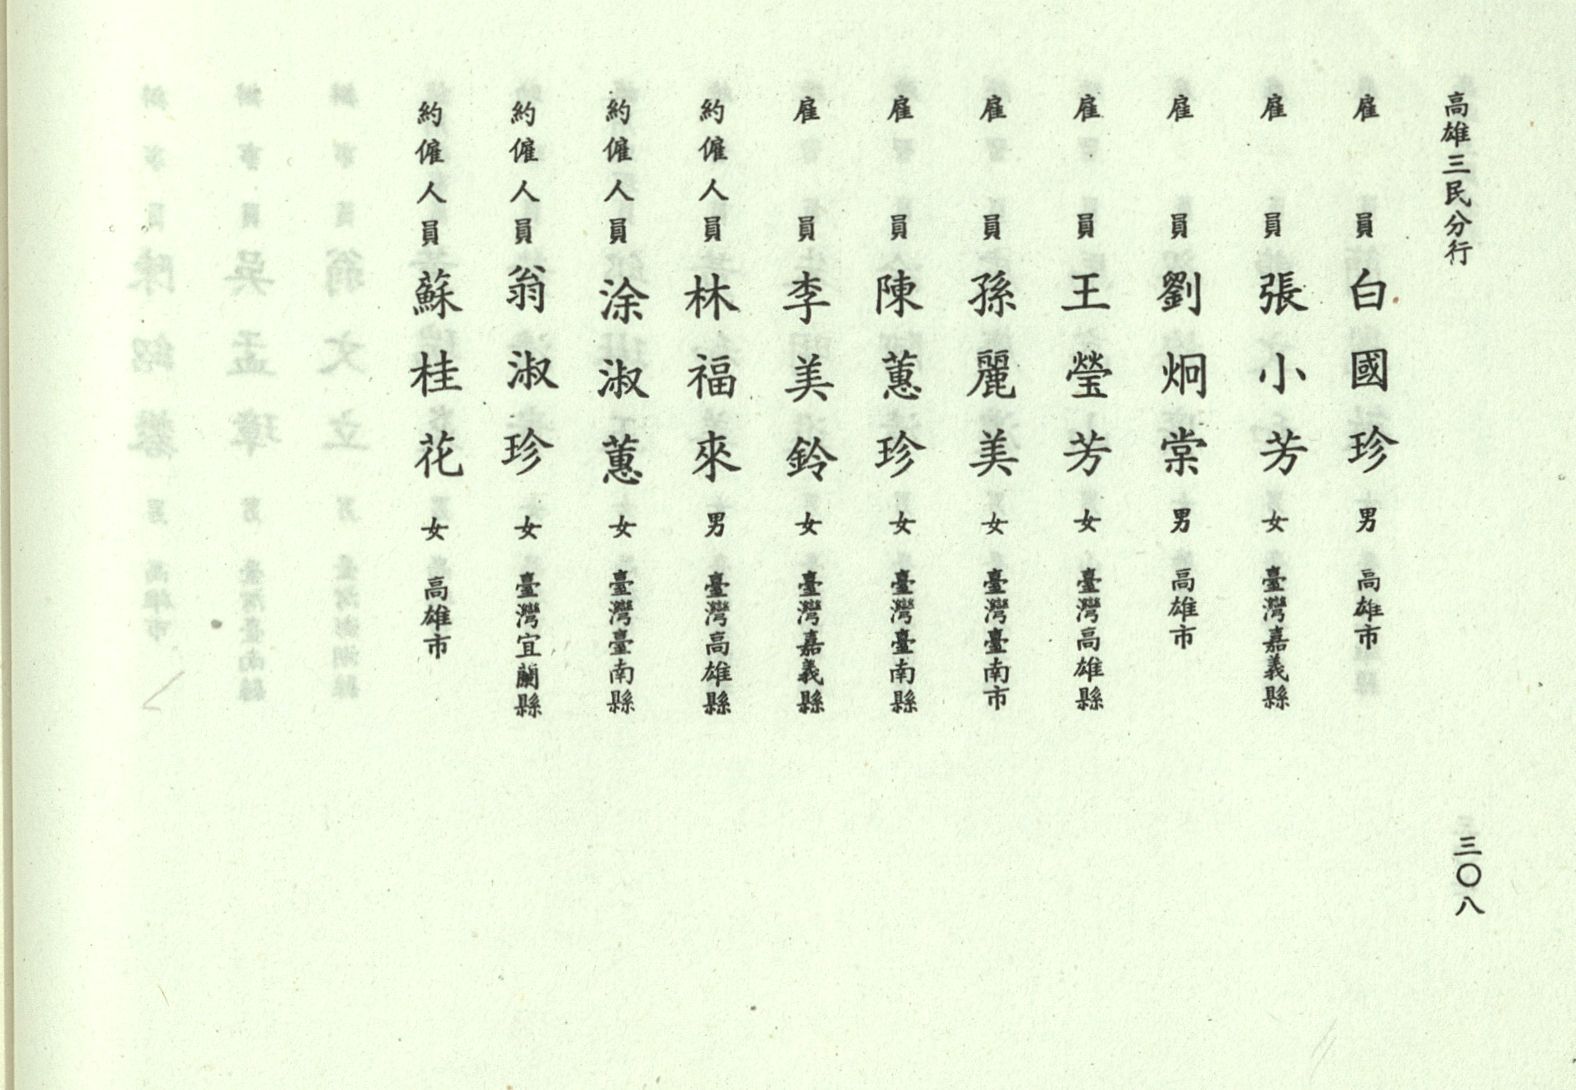 高雄三民分行
雇員 白國珍 男 高雄市
雇員 張小芳 女 臺灣嘉義縣
雇員 劉炯棠 男 高雄市
雇員 王瑩芳 女 臺灣高雄縣
雇員 孫麗美 女 臺灣臺南市
雇員 陳蕙珍 女 臺灣臺南縣
雇員 李美鈴 女 臺灣嘉義縣
約僱人員 林福來 男 臺灣高雄縣
約僱人員 涂淑蕙 女 臺灣臺南縣
約僱人員 翁淑珍 女 臺灣宜蘭縣
約僱人員 蘇桂花 女 高雄市
三〇八